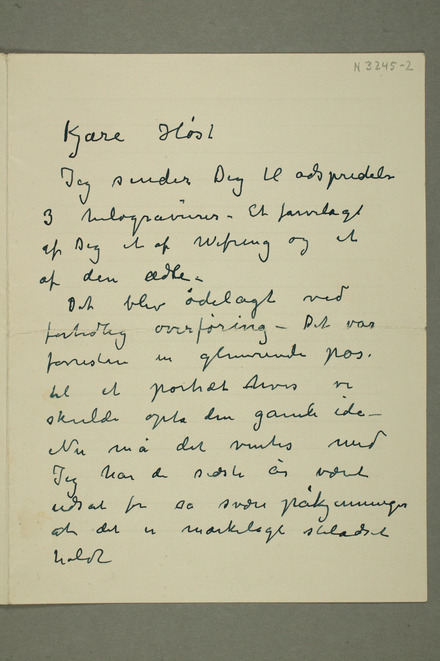 N 3245-2
Kjære Høst
Jeg sender Dig til adspredelse
3 heliogravurer – Et farvelagt
af Dig et af Wefring og et
af den ædle –
Det blev ødelagt ved
fortidlig overføring – Det var
forresten en glimrende pos.
til et portræt hvis vi
skulde opta den gamle ide –
Nu må det ventes med
Jeg har de sidste år været
udsat for så svære påkjenninger
at det er mærkeligt skeladset
holdt